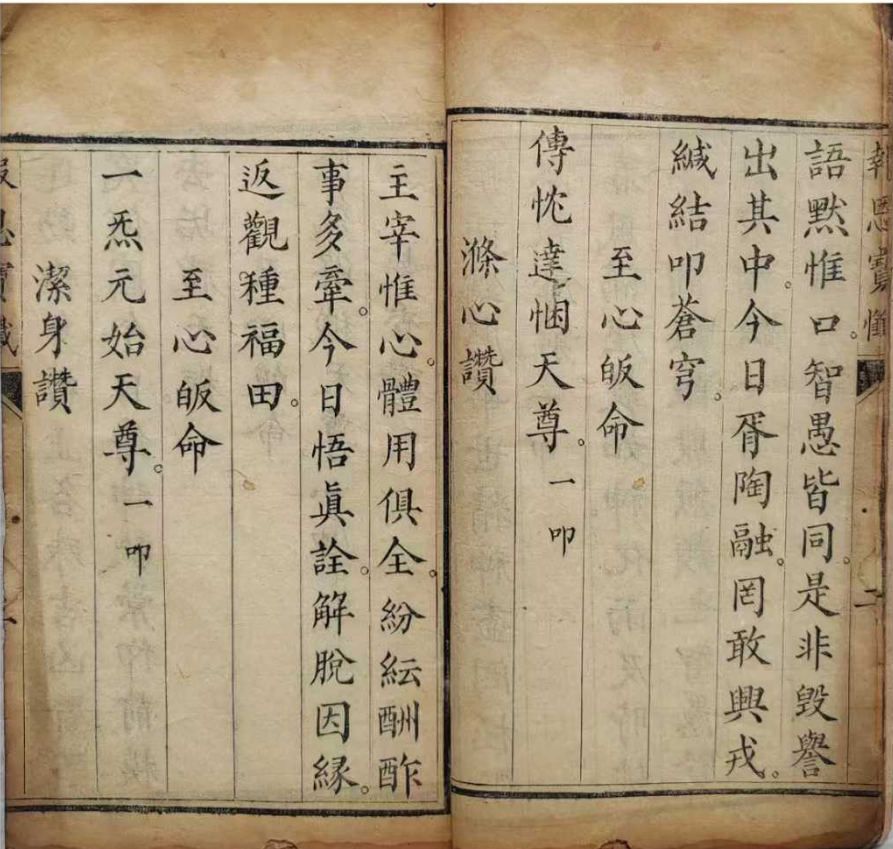 報恩寶懺
語默惟口。智愚皆同。是非毀譽
出其中。今日胥陶融。罔敢興戎。
緘結叩蒼穹。
至心皈命
傳忱達悃天尊。一叩
滌心讚
二
主宰惟心。體用俱全。紛紜酬酢
事多牽。今日悟眞詮。解脫因緣。
返觀種福田。
至心皈命
一炁元始天尊。一叩
潔身讚
報恩寶懺